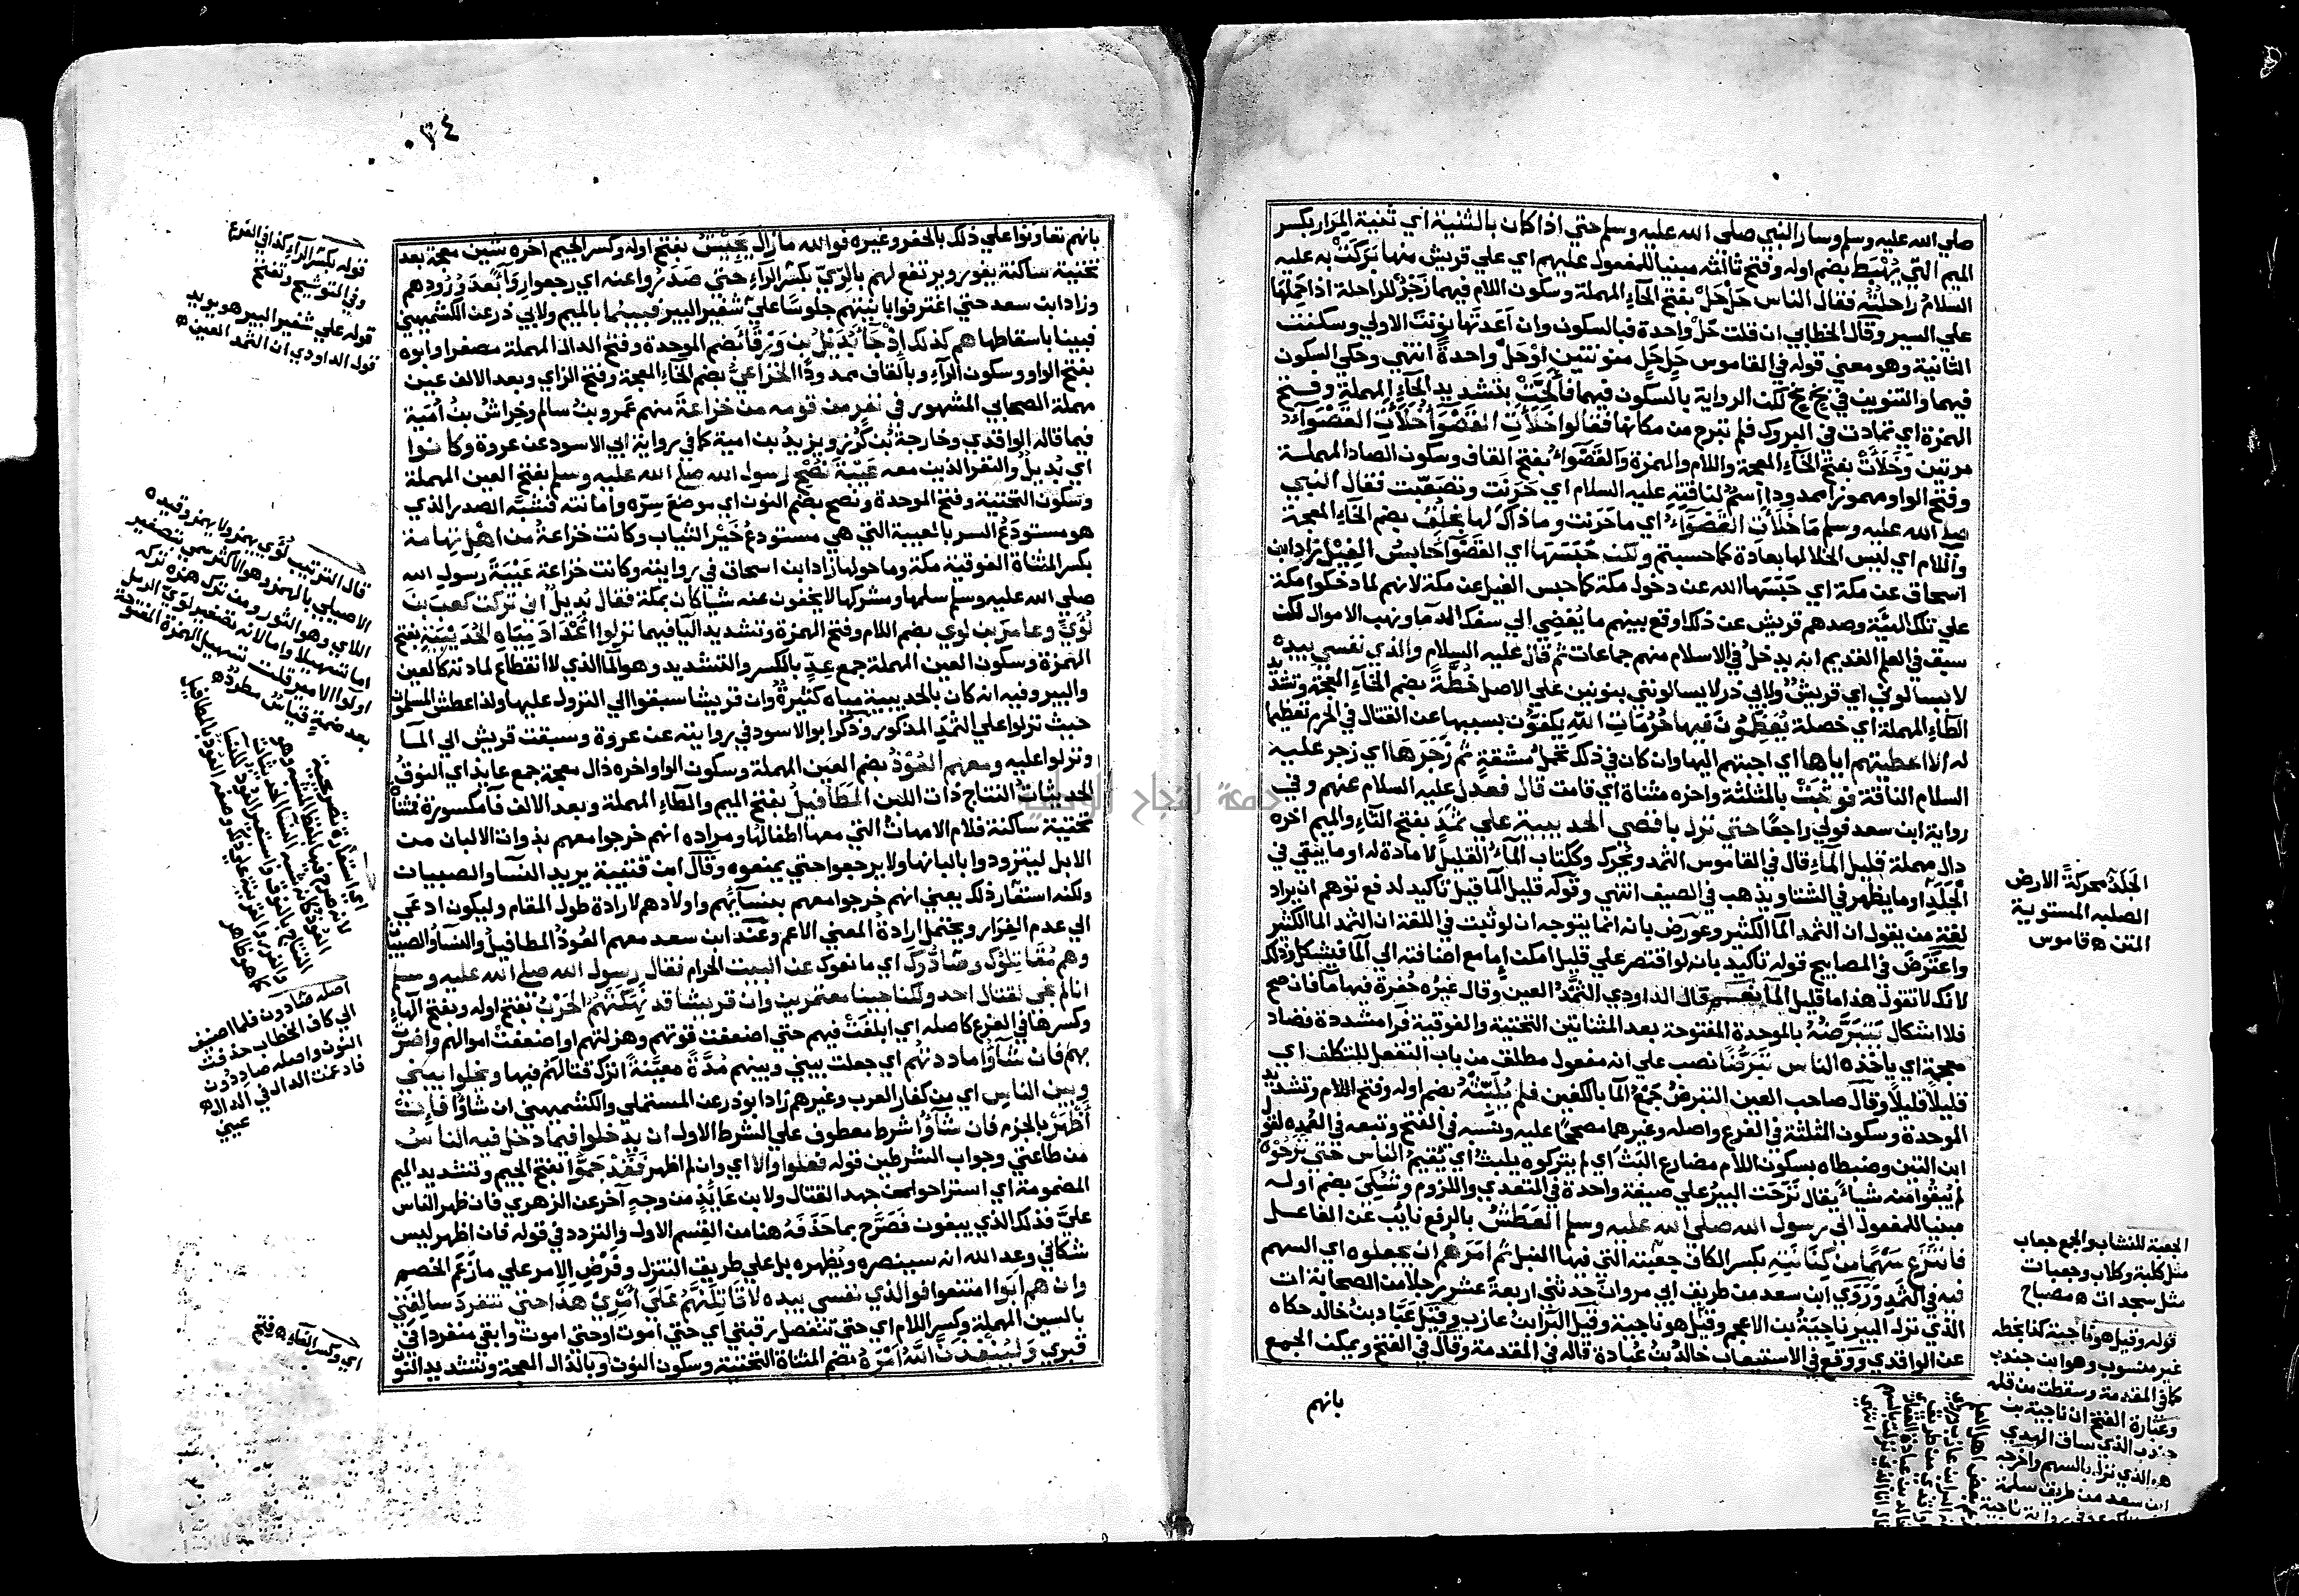 صلي الله عليه وسلم وسار النبي صلى الله عليه وسلم حتي اذا كان بالثنية اي ثنية المرار بكسر
الميم التي يُهْبَط بضم اوله وفتح ثالثه مبنيا للمفعول عليهم اي علي قريش منها بَرَكَتْ به عليه
السلام راحلته فقال الناس حَلْ حَلْ بفتح الحاء المهملة وسكون اللام فيهما زَجْرٌ للراحلة اذا حملها
علي السير وقال الخطابي ان قلت حَلْ واحدة فبالسكون وان اعدتها نونت الاولي وسكنت
الثانية وهو معني قوله في القاموس حَلٍ حَلٍ منونتين اوحَلْ واحدة انتهي وحكي السكون
فيهما والتنوين في بخ بخ لكن الرواية بالسكون فيهما فالَحَّتْ بتشديد الحاء المهملة وفتح
الهمزة اي تمادت في البروك فلم تبرح من مكانها فقالوا خَلَأَتِ القَصْوَآءُ خَلَأَتِ القَصْوَآءُ
مرتين وخَلَأَتْ بفتح الخاء المعجمة واللام والهمزة والقَصْوَاءُ بفتح القاف وسكون الصاد المهملة
وفتح الواو مهموزا ممدودا اسمٌ لناقته عليه السلام اي حَرَنَت وتصَعّبت فقال النبي
صلى الله عليه وسلم مَا خَلَأَتِ القَصْوَآءُ اي ما حَرَنت وما ذاك لها بخلُق بضم الخاء المعجمة
واللام اي ليس الخلا لها بعادة كما حسبتم ولكن حَبَسَهَا اي القَصْوَآ حَابسُ الفِيْلِ زاد ابن
اسحاق عن مكة اي حَبَسَها الله عن دخول مكة كما حبس الفيل عن مكة لانهم لما دخلوا مكة
علي تلك الهيَّة وصدهم قريش عن ذلك لوقع بينهم ما يُفضِي الي سفك الدما ونهب الاموال لكن
سبق في العلم القديم انه يدخلُ في الاسلام منهم جماعات ثم قال عليه السلام والذي نفسي بيده
لا يسالوني اي قريش ولابي ذر لا يسالونني بنونين علي الاصل خُطَّةً بضم الخاء المعجمة وتشديد
الطاء المهملة اي خصلة يُعَظِّمُونَ فيها حُرُمَاتِ اللهِ يكفوُّن بسببها عن القتال في الحرم تعظيما
له الا اعطيتهم اياها اي اجبتهم اليها وان كان في ذلك تحمل مشقة ثم زَجَرَهَا اي زجر عليه
السلام الناقة فوثَبَتْ بالمثلثة واخره مثناة اي قامت قال فعدل عليه السلام عنهم وفي
رواية ابن سعد فولي راجعا حتي نزل باقصي الحديبية علي ثَمَدٍ بفتح الثاء والميم اخره
دال مهملة قليل الماء قال في القاموس الثمد ويحرك وككتاب الماء القليل لا مادة له او ما يبقي في
الجَلَدِ او ما يظهر في الشتا ويذهب في الصيف انتهي وقوله قليل الما قيل تاكيد لدفع توهم ان يراد
لغة من يقول ان الثمد الما الكثير وعورض بانه انما يتوجه ان لو ثبت في اللغة ان الثمد الما الكثير
واعتَرَضَ في المصابيح قوله تاكيد بانه لو اقتصر علي قليل امكن اما مع اضافته الي الما فيشكل وذلك
لانك لا تقول هذا ما قليل الما نعم قال الداودي الثَّمَدُ العينُ وقال غيره حُفرة فيها ما فان صح
فلا اشكال يَتَبَرَّضُهُ بالموحدة المفتوحة بعد المثناتين التحتية والفوقية فرا مشددة فضاد
معجمة اي ياخذه الناس تَبَرُّضًا نصب علي انه مفعول مطلق من باب التفعل للتكلف اي
قليلًا قليلًا وقال صاحب العين التبرضُ جَمعُ الما بالكفين فلم يُلَبِّثْهُ بضم اوله وفتح اللام وتشديد
الموحدة وسكون المثلثة في الفرع واصله وغيرهما مصححا عليه ونَسَبه في الفتح وتبعه في العمدة لقول
ابن التين وضبطاه بسكون اللام مضارع البث اي لم يتركوه يلبث اي يُقيمُ الناس حتي نزحُوْه
لم يُبقُوا منه شياءً يقال نَزَحَت البيرُ علي صيغة واحدة في التعدي واللزوم وشُكِيَ بضم اوله
مبنيا للمفعول الي رسول الله صلى الله عليه وسلم العَطَشُ بالرفع نايب عن الفاعل
فانتَزَع سَهْمًا من كِنَانَتِهِ بكسر الكاف جعبته التي فيها النبل ثم امَرَهُم ان يجعلوه اي السهم
فيه في الثمد وروي ابن سعد من طريق ابي مروان حدثني اربعة عشر رجلا من الصحابة ان
الذي نزل البير ناجية بن الاعجم وقيل هو ناجية وقيل البَرابنُ عازب وقيل عَبَّاد بنُ خالد حكاه
عن الواقدي ووقع في الاستيعاب خالدُ بنُ عُبادة قاله في المقدمة وقال في الفتح ويمكن الجمع
بانهم
الجَلَدُ محركةً الارض
الصلبه المستوية
المتن ه قاموس
الجعبة للنشاب والجمع جعاب
مثل كلبة وكلاب وجعبات
مثل سجدات ه مصباح
قوله وقيل هو ناجية كذا بخطه
غير منسوب وهو ابن جندب
كما في المقدمة وسقطت من قلمه
وعبارة الفتح ان ناجية بن
جندب الذي ساق الهدي
هو الذي نزل بالسهم واخرجه
ابن سعد من طريق سلمة
٣٤
بانهم تعاونوا علي ذلك بالحفر وغيره فوالله مازال يَجِيْشُ بفتح اوله وكسر الجيم اخره شين معجمة بعد
تحتية ساكنة يفور ويرتفع لهم بالرِّيِّ بكسر الراء حتي صَدَرُوا عنه اي رجعوا رِوَآءً بَعدَ وُرُودِهم
وزاد ابن سعد حتي اغترفوا بانيتهم جلوسًا علي شفير البير فبينما بالميم ولابي ذر عن الكشميهني
فبينا باسقاطها هم كذلك اِذْ جَآ بُدَيْلُ بن وَرْقَآء بضم الموحدة وفتح الدال المهملة مصغرا وابوه
بفتح الواو وسكون الراء وبالقاف ممدودًا الخزاعيُّ بضم الخاء المعجمة وفتح الزاي وبعد الالف عين
مهملة الصحابي المشهور في نفر من قومه من خزاعة منهم عَمرو بنُ سالم وخِراشُ بنُ اُمَيّة
فيما قاله الواقدي وخارجة بن كُرْز ويزيد بن امية كما في رواية ابي الاسود عن عروة وكانوا
اي بُدِيلٌ والنفر الذين معه عَيْبَةَ نُصْح رسول الله صلى الله عليه وسلم بفتح العين المهملة
وسكون التحتية وفتح الموحدة ونصح بضم النون اي موضعَ سِرّه وامانته فشبَّه الصدر الذي
هو مستودَعُ السر بالعيبة التي هي مستودعُ خَيْر الثياب وكانت خزاعة من اَهْلِ تِهامَة
بكسر المثناة الفوقية مكة وما حولها زاد ابن اسحاق في روايته وكانت خزاعة عَيْبَة رسول الله
صلي الله عليه وسلم مسلمها ومشركها لا يخفون عنه شيا كان بمكة فقال بُدَيلٌ اني تركت كعبَ بن
لُؤَيّ وعامر بن لوي بضم اللام وفتح الهمزة وتشديد اليا فيهما نزلوا اَعْدَادَ مِيَاهِ الحُدَيْبِيَةِ بفتح
الهمزة وسكون العين المهملة جمع عِدٍّ بالكسر والتشديد وهو الما الذي لا انقطاع لمادته كالعين
والبير وفيه انه كان بالحديبية مياه كثيرة وان قريشا سبقوا الي النزول عليها ولذا عطش المسلمون
حيث نزلوا علي الثمَدِ المذكور وذكر ابو الاسود في روايته عن عروة وسبقت قريش الي الما
ونزلوا عليه ومعهم العُوْذُ بضم العين المهملة وسكون الواو اخره ذال معجمة جمع عايذ اي النوقُ
الحديثاتُ النتاج ذات اللبن المَطَافِيلُ بفتح الميم والطاء المهملة وبعد الالف فا مكسورة فمثناة
تحتية ساكنة فلام الامهات التي معها اطفالها ومراده انهم خرجوا معهم بذوات الالبان من
الابل ليتزودوا بالبانها ولا يرجعوا حتي يمنعوه وقال ابن قتيبة يريد النسا والصبيان
ولكنه استعار ذلك يعني انهم خرجوا معهم بنسآئهم واولادهم لارادة طول المقام وليكون ادعَي
الي عدم الفِرَار ويحتمل ارادة المعني الاعم وعند ابن سعد معهم العُوذُ المطافيلُ والنسآ والصبيان
وهم مُقَاتِلُوْكَ وصَادُّوْكَ اي ما نعوك عن البيت الحرام فقال رسول الله صلى الله عليه وسلم
انا لم نجي لقتال احد ولكنا جينا معتمرين وان قريشا قد نَهِكَتْهُمُ الحَرْبُ بفتح اوله وبفتح الهاء
وكسرها في الفرع كاصله اي ابلَغَتْ فيهم حتي اضعفت قوتهم وهزلتهم او اضعفتْ اموالهم واضَرّتْ
بهم فان شَآؤا ماددتهُم اي جعلت بيني وبينهم مُدَّةً معيَّنَةً اترك قتالَهُم فيها ويخلوا بيني
وبين الناس اي من كفار العرب وغيرهم زاد ابو ذر عن المستملي والكشميهني ان شاؤا فإن
أَظْهَرْ بالجزم فان شآؤا شرط معطوف علي الشرط الاول ان يدخلوا فيما دخل فيه الناسُ
من طاعتي وجواب الشرطين قوله فعلوا والا اي وان لم اظهر فَقَدْ جَمُّوا بفتح الجيم وتشديد الميم
المضمومة اي استراحوا من جهد القتال ولابن عَايذٍ من وجه آخر عن الزهري فان ظهر الناس
عليَّ فذلك الذي يبغون فصَرَّح بما حَذَفَهُ هنا من القِسم الاول والتردد في قوله فان اظهر ليس
شكا في وعد الله انه سينصره ويُظهره بل علي طريق التنزل وفَرْضِ الامر علي ما زَعَم الخصم
وان هم اَبَوْا امتنعوا فوالذي نفسي بيده لاُقَاتِلَنَّهُم عَلَيَ اَمْرِيْ هَذا حتي تنفردَ سالِفَتي
بالسين المهملة وكسر اللام اي حتي تنفصل رقبتي اي حتي اموت او حتي اموت وابقي منفردا في
قبري وَلَيُنْفِذَنَّ اللّهُ اَمْرَهُ بضم المثناة التحتية وسكون النون وبالذال المعجمة وتشديد النون
قوله بكسر الراء كذا في الفرع
وفي التوشيح وتفتح
قوله علي شفير البير هو يويد
قول الداودي ان الثمد العين ه
قال الترتيب لُؤي يهمز ولا يهمز وقيده
الاصيلي بالهمز وهو الاكثر سمي بتصغير
اللاي وهو الثور ومن ترك همزه تركه
اما تسهيلا واما لانه تصغير لوي الرمل
اولوا الامير قلت تسهيل الهمزة المفتوحة
بعد ضمة قياس مطرد ه
اي استعارة تصريحية
اصله مقاتلون فلما اضيف
الي كاف الخطاب حذفت
النون واصله صادِدُون
فادغمت الدال في الدال ه
عيني
اي وكسر الفاء ه فتح